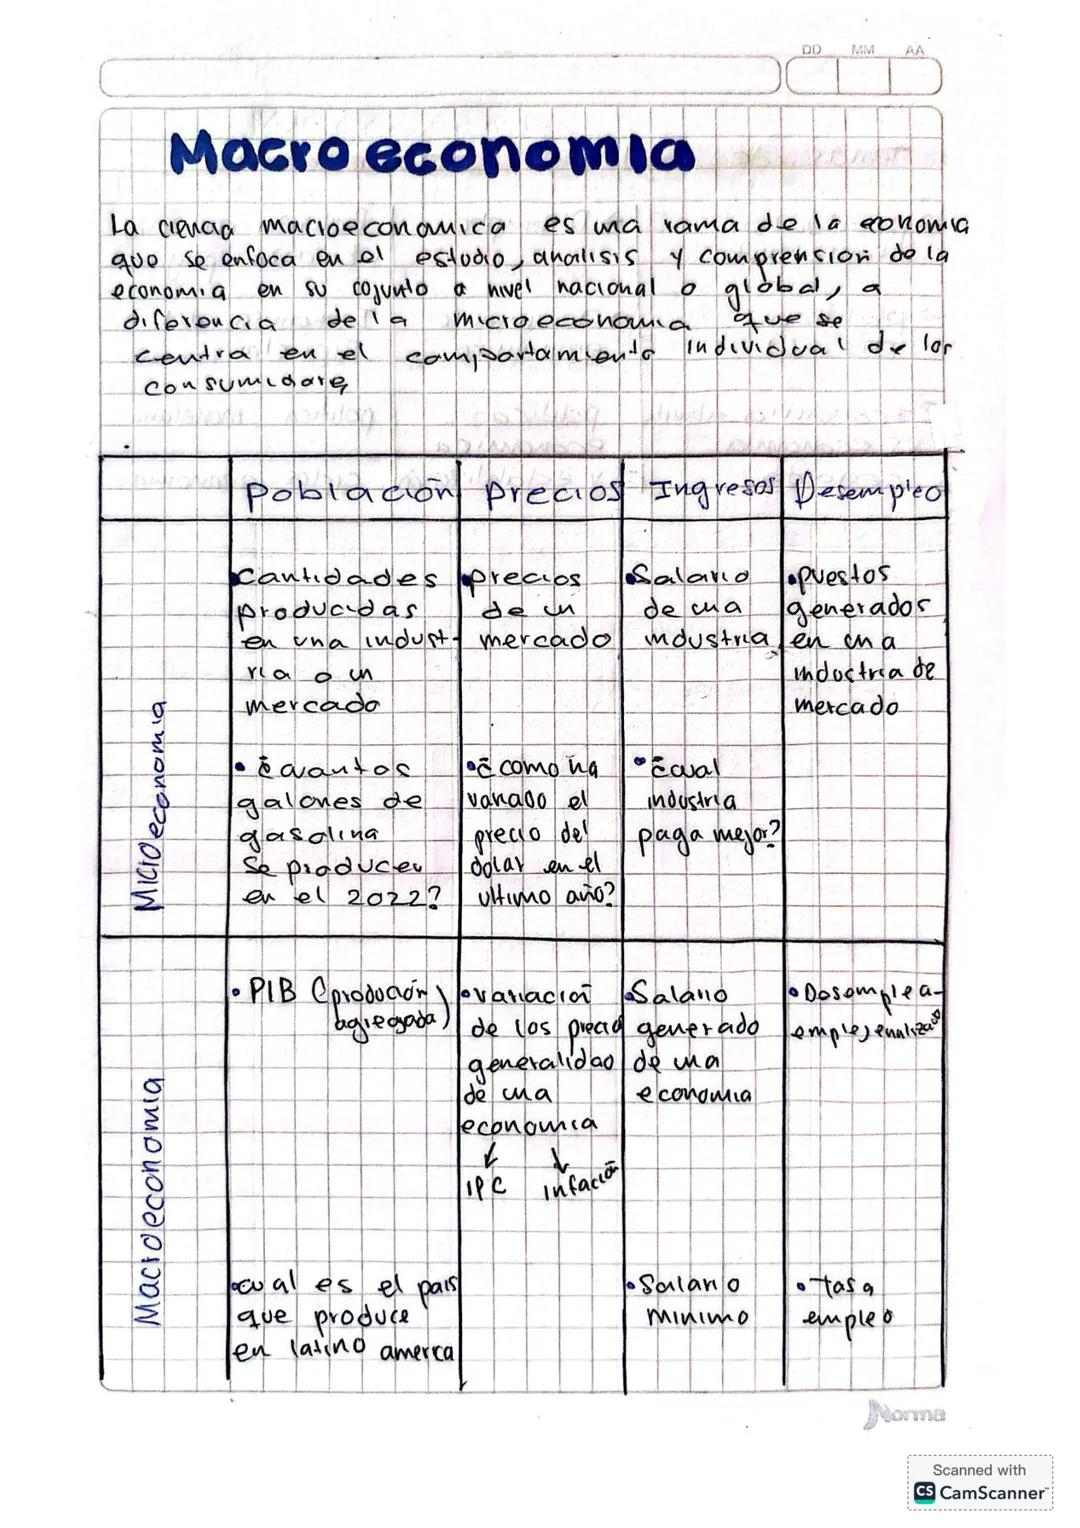 DD MM AA
Macroeconomia
La ciencia macroeconomica es una rama de la economia
que se enfoca en el estudio, analisis y comprension de la
economia en su cojunto a nivel nacional o global, a
diferencia de la microeconomia que se
centra en el comportamiento individual de los
consumidore,
Población Precios Ingresos Desempleo
Microeconomia
•Cantidades
producidas
en una indust-
ria o un
mercado
• ¿cuantos
galones de
gasolina
se producen
en el 2022?
•precios
de un
mercado
•¿como ha
variado el
precio del
dolar en el
ultimo año?
•Salario
de una
industria
•¿cual
industria
paga mejor?
•puestos
generados
en una
industria de
mercado
Macroeconomia
•PIB (producción
agregada)
•cual es el pais
que produce
en latino america
•variación
de los precio
generalidad
de una
economia
↓ ↓
IPC infación
•Salario
generado
de una
economia
•Salario
minimo
•Desemplea-
•tasa
empleo
Norma
Scanned with
CS CamScanner